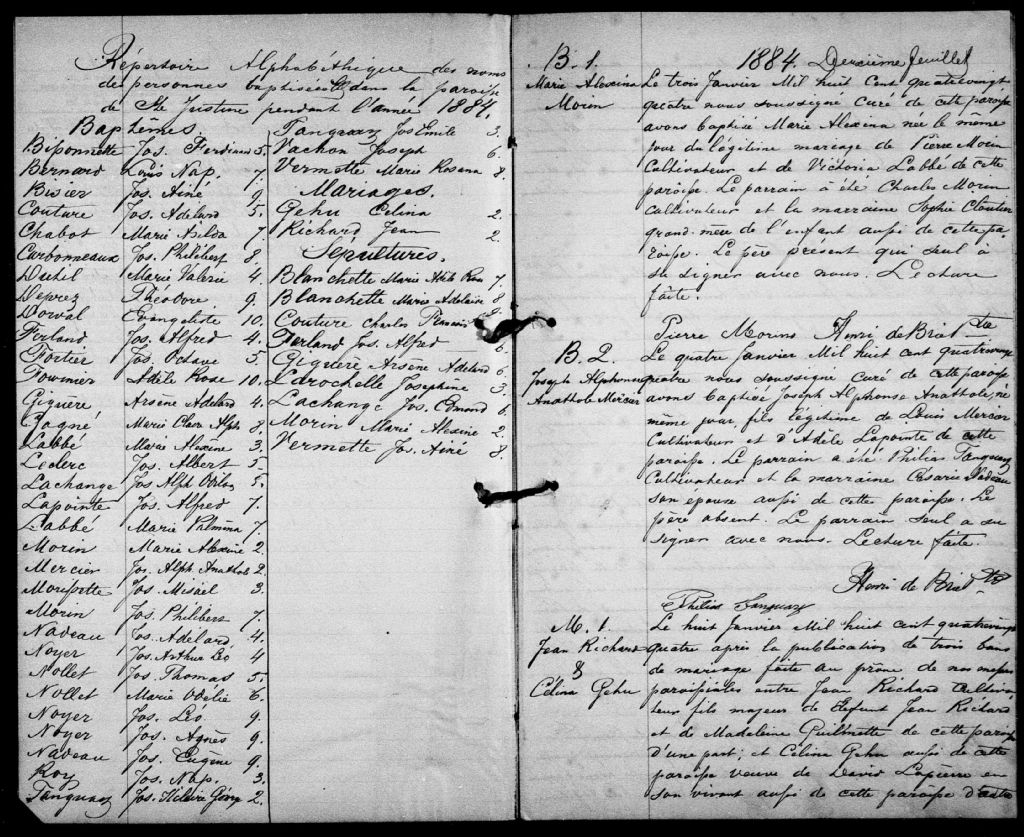 Répertoire Alphabéthique des noms
de personnes baptisées dans la paroisse
de Ste Justine pendant l'année 1884.
Baptêmes.
Bissonnette Jos. Ferdinand 5.
Bernard Louis Nap. 7
Bisier Jos. Aimé 9
Couture Jos. Adélard 5.
Chabot Marie Exilda 7
Carbonneaux Jos. Philibert 8
Dutil Marie Valérie 4.
Deprez Théodore 9.
Dorval Evangeliste 10.
Ferland Jos. Alfred 4.
Fortier Jos. Octave 5
Fournier Adèle Rose 10.
Giguère Arsène Adelard 4.
Gagné Marie Clara Alph 8
Labbé Marie Alexine 3.
Leclerc Jos. Albert 5
Lachange Jos. Alph 5.
Lapointe Jos. Alfred 7.
Labbé Marie Palmina 7.
Morin Marie Alexine 2.
Mercier Jos. Alph Anathole 2
Jos. Misaël 3.
Morin Jos. Philibert 7.
Nadeau Jos. Adelard 4.
Noyer Jos. Arthur Léo 4
Nollet Jos. Thomas 5.
Nollet Marie Odélie 6.
Noyer Jos. Léo. 9.
Noyer Jos. Agnès 9.
Nadeau Jos. Eugène 9.
Roy Jos. Nap. 3.
Tanguay Jos. Hilaire Géory 2.
Tanguay Jos Emile 3.
Vachon Joseph 6.
Vermette Marie Rosana 8.
Mariages.
Gehu Celina 2.
Richard Jean 2.
Sépultures.
Blanchette Marie Rose 7
Blanchette Marie Adelaine 8
Couture Charles
Ferland Jos. Alfred 6
Giguère Arsène Adelard 6.
Larochelle Josephine 3
Lachange Jos. Edmond 6.
Morin Marie Alexine 2.
Vermette Jos. Aimé 8.
1884. Deuxième feuillet
B. 1.
Marie Alexina
Morin
Le trois Janvier Mil huit Cent quatrevingt
quatre nous soussigné curé de cette paroisse
avons baptisé Marie Alexina née le même
jour du légitime mariage de Pierre Morin
Cultivateur et de Victoria Labbé de cette
paroisse. Le parrain a été Charles Morin
cultivateur et la marraine Sophie Cloutier
grand-mère de l'enfant aussi de cette pa-
roisse. Le père présent qui seul a
su signer avec nous. Lecture
faite.
Pierre Morin Henri de Brie Ptre
B. 2.
Joseph Alphonse
Anathole Mercier
Le quatre Janvier Mil huit cent quatrevingt
quatre nous soussigné curé de cette paroisse
avons baptisé Joseph Alphonse Anathole, né
même jour, fils légitime de Louis Mercier
Cultivateur et d'Adèle Lapointe de cette
paroisse. Le parrain a été Philias Tanguay
Cultivateur et la marraine Césarie Nadeau
son épouse aussi de cette paroisse. Le
père absent. Le parrain seul a su
signer avec nous. Lecture faite.
Henri de Brie Ptre
Philias Tanguay
M. 1.
Jean Richard
&
Célina Gehu
Le huit Janvier Mil huit cent quatrevingt
quatre après la publication de trois bans
de mariage faite au prône de nos messes
paroissiales entre Jean Richard cultiva-
teur fils majeur de defunt Jean Richard
et de Madeleine Guilmette de cette paroisse
d'une part; et Céline Gehu aussi de cette
paroisse veuve de David Lapierre en
son vivant aussi de cette paroisse d'autre